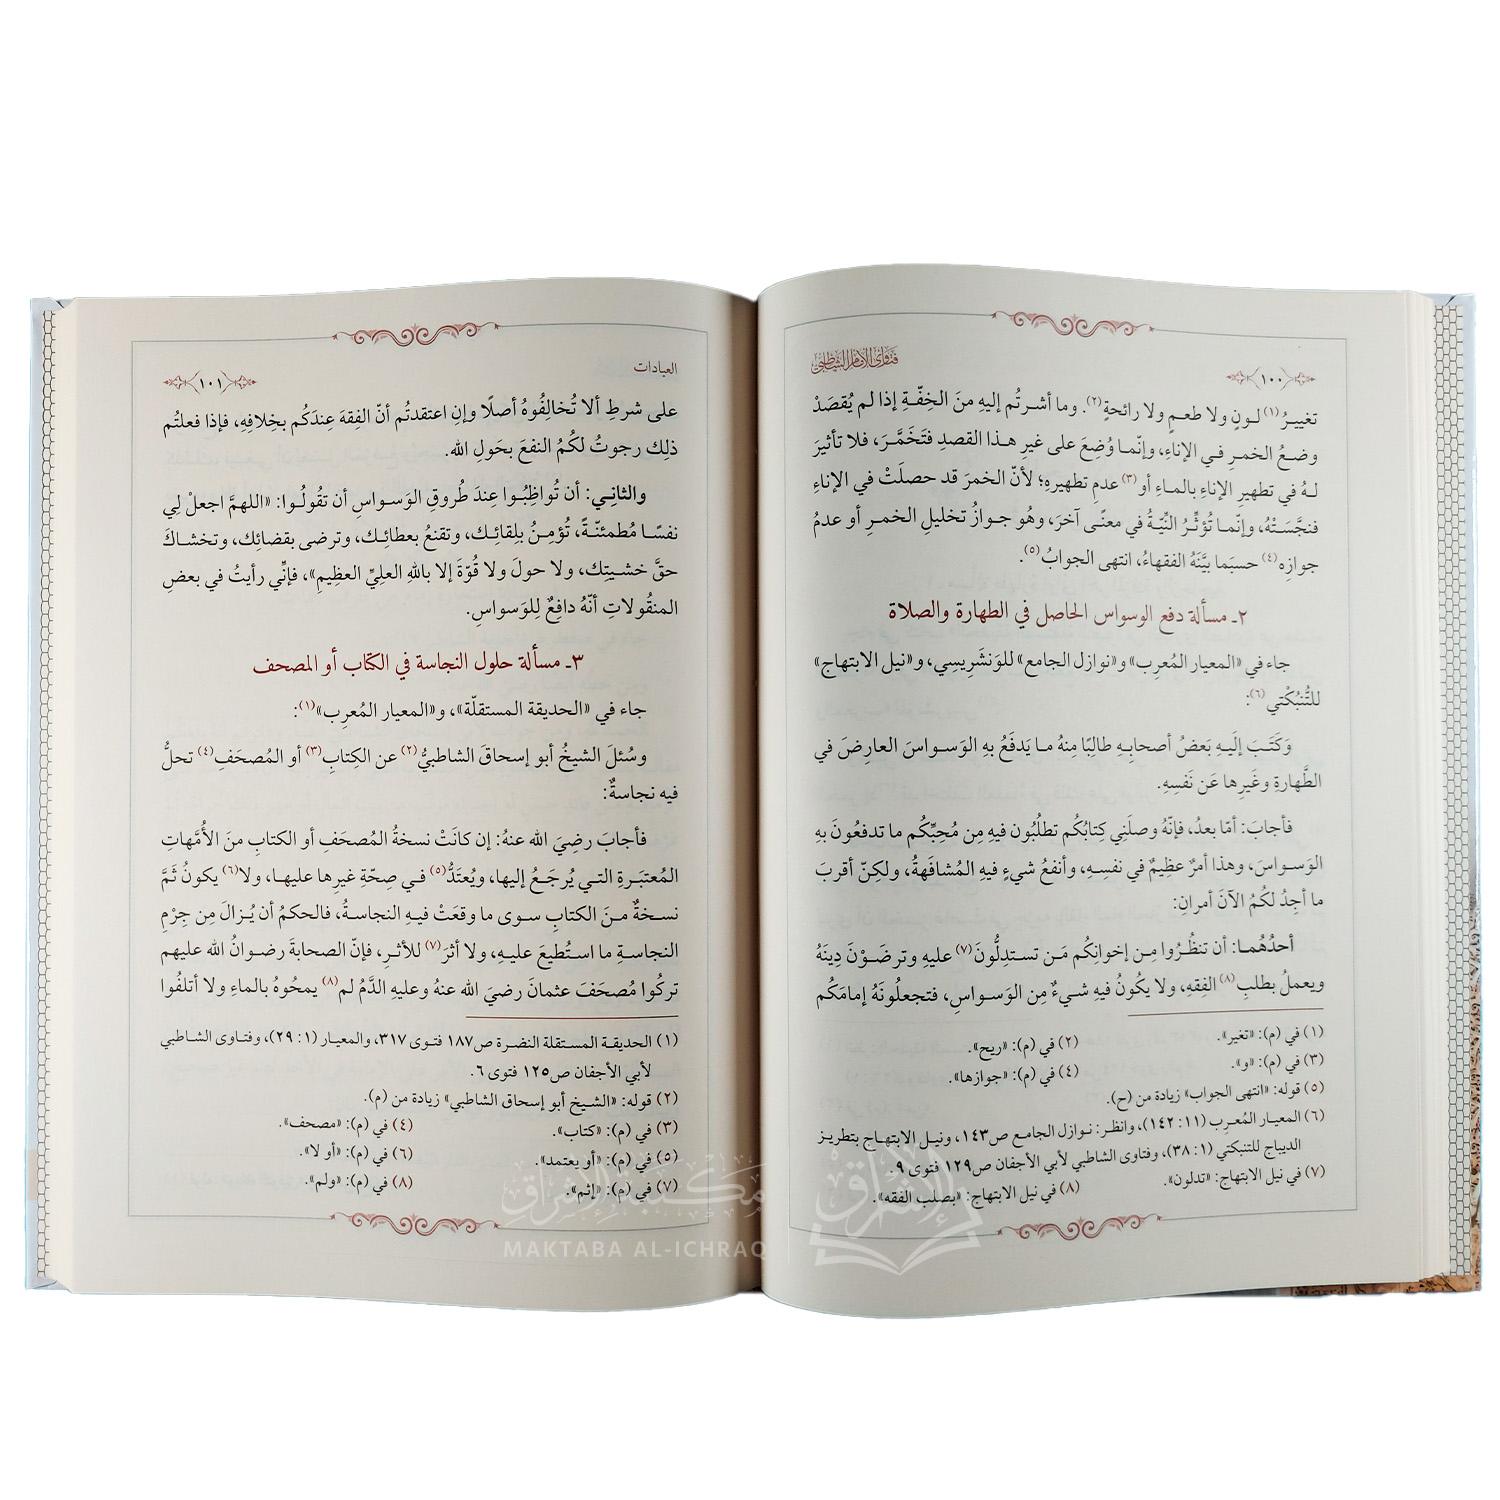 فتاوى الإمام الشاطبي
١٠٠
تغييرُ (١) لـونٍ ولا طعـمٍ ولا رائحةٍ (٢). وما أشرتُم إليهِ منَ الخِفّةِ إذا لم يُقصَدْ
وضعُ الخمرِ فـي الإناءِ، وإنّمـا وُضِعَ على غيرِ هـذا القصدِ فتَخَمَّرَ، فلا تأثيرَ
لـهُ في تطهيرِ الإناءِ بالمـاءِ أو (٣) عدمِ تطهيرِهِ؛ لأنّ الخمرَ قد حصلَتْ في الإناءِ
فنجَّسَتْهُ، وإنّمـا تُؤثِّرُ النِّيّةُ في معنًى آخرَ، وهُو جـوازُ تخليلِ الخمـرِ أو عدمُ
جوازِه (٤) حسبَما بيَّنَهُ الفقهاءُ، انتهى الجوابُ (٥).
٢ـ مسألة دفع الوسواس الحاصل في الطهارة والصلاة
جاء في «المعيار المُعرب» و«نوازل الجامع» للوَنشَرِيسِي، و«نيل الابتهاج»
للتُّنبُكْتي (٦):
وَكَتَبَ إلَيـهِ بَعضُ أصحابِـهِ طالِبًا مِنهُ مـا يَدفَعُ بهِ الوَسـواسَ العارِضَ في
الطَّهارةِ وغَيرِها عَن نَفسِهِ.
فأجابَ: أمّا بعدُ، فإنّهُ وصلَني كِتابُكُم تطلُبُون فيهِ مِن مُحِبِّكُم ما تدفعُونَ بهِ
الوَسـواسَ، وهذا أمرٌ عظِيمٌ في نفسِـهِ، وأنفعُ شيءٍ فيهِ المُشافَهةُ، ولكِنّ أقربَ
ما أجِدُ لكُمُ الآنَ أمرانِ:
أحدُهُمـا: أن تنظُرُوا مِـن إخوانِكُم مَن تستدِلُّونَ (٧) عليهِ وترضَوْنَ دِينَهُ
ويعملُ بطلبِ (٨) الفِقهِ، ولا يكُونُ فيهِ شـيءٌ مِن الوَسـواسِ، فتجعلُونَهُ إمامَكُم
(١) في (م): «تغير».
(٢) في (م): «ريح».
(٣) في (م): «و».
(٤) في (م): «جوازها».
(٥) قوله: «انتهى الجواب» زيادة من (ح).
(٦) المعيـار المُعرِب (١١: ١٤٢)، وانظر: نوازل الجامع ص١٤٣، ونيـل الابتهـاج بتطريز
الديباج للتنبكتي (١: ٣٨)، وفتاوى الشاطبي لأبي الأجفان ص١٢٩ فتوى ٩.
(٧) في نيل الابتهاج: «تدلون».
(٨) في نيل الابتهاج: «بصلب الفقه».
العبادات
١٠١
على شرطِ ألا تُخالِفُوهُ أصلًا وإنِ اعتقدتُم أنّ الفِقهَ عِندَكُم بخِلافِهِ، فإذا فعلتُم
ذلِك رجوتُ لكُمُ النفعَ بحَولِ الله.
والثانِـي: أن تُواظِبُـوا عِندَ طُروقِ الوَسـواسِ أن تقُولُـوا: «اللهمَّ اجعلْ لِي
نفسًـا مُطمئنّـةً، تُؤمِـنُ بلِقائِـك، وتقنَعُ بعطائِـك، وترضى بقضائِك، وتخشـاكَ
حقَّ خشـيتِك، ولا حولَ ولا قُوّةَ إلا باللهِ العلِيِّ العظِيمِ»، فإنِّي رأيتُ في بعضِ
المنقُولاتِ أنّهُ دافِعٌ لِلوَسواسِ.
٣ـ مسألة حلول النجاسة في الكتاب أو المصحف
جاء في «الحديقة المستقلّة»، و«المعيار المُعرِب» (١):
وسُئلَ الشيخُ أبو إسحاقَ الشاطبيُّ (٢) عن الكِتابِ (٣) أو المُصحَفِ (٤) تحلُّ
فيه نجاسةٌ:
فأجابَ رضِيَ الله عنهُ: إن كانَتْ نسخةُ المُصحَفِ أو الكتابِ منَ الأُمَّهاتِ
المُعتبَـرةِ التـي يُرجَـعُ إليها، ويُعتَدُّ (٥) فـي صِحّةِ غيرِها عليهـا، ولا (٦) يكونُ ثَمَّ
نسـخةٌ مـنَ الكتابِ سـوى ما وقعَتْ فيـهِ النجاسـةُ، فالحكمُ أن يُـزالَ مِن جِرْمِ
النجاسـةِ ما استُطيعَ عليـهِ، ولا أثرَ (٧) للأثرِ، فإنّ الصحابةَ رضـوانُ الله عليهم
تركُوا مُصحَفَ عثمانَ رضيَ الله عنهُ وعليهِ الدَّمُ لم (٨) يمحُوهُ بالماءِ ولا أتلفُوا
(١) الحديقـة المسـتقلة النضـرة ص١٨٧ فتوى ٣١٧، والمعيـار (١: ٢٩)، وفتاوى الشـاطبي
لأبي الأجفان ص١٢٥ فتوى ٦.
(٢) قوله: «الشيخ أبو إسحاق الشاطبي» زيادة من (م).
(٣) في (م): «كتاب».
(٤) في (م): «مصحف».
(٥) في (م): «أو يعتمد».
(٦) في (م): «أو لا».
(٧) في (م): «إثم».
(٨) في (م): «ولم».
مكتبة الإشراق
MAKTABA AL-ICHRAQ
الإشراق